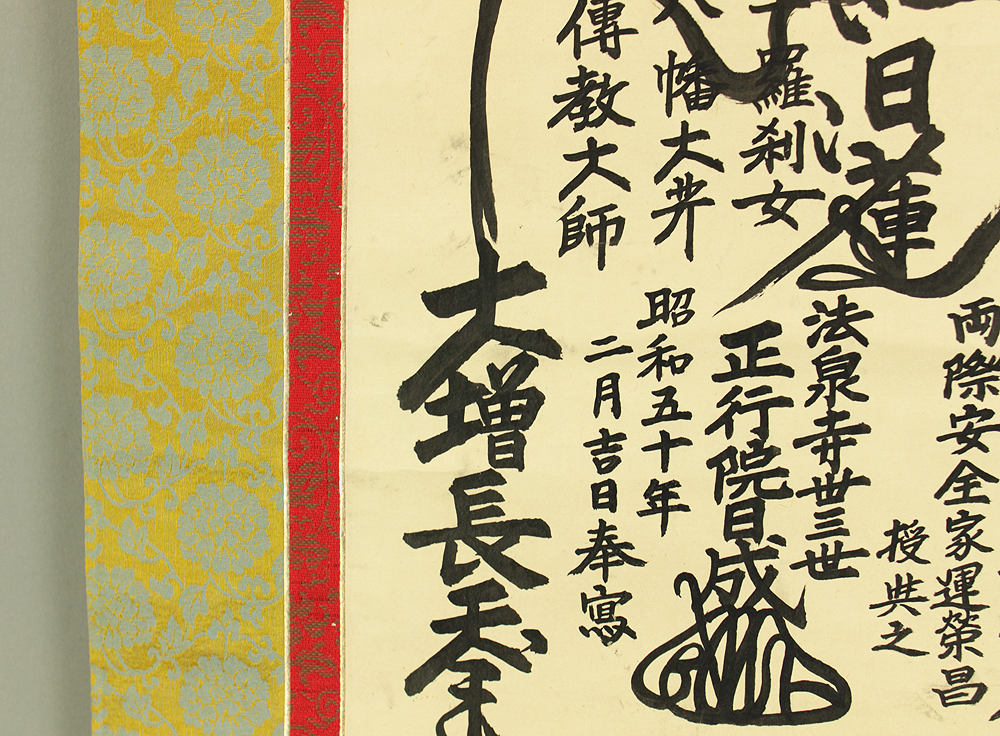 日蓮
両際安全家運榮昌
授與之
法泉寺丗三世
正行院日盛
羅刹女
幡大井
昭和五十年
二月吉日奉寫
傳教大師
大増長